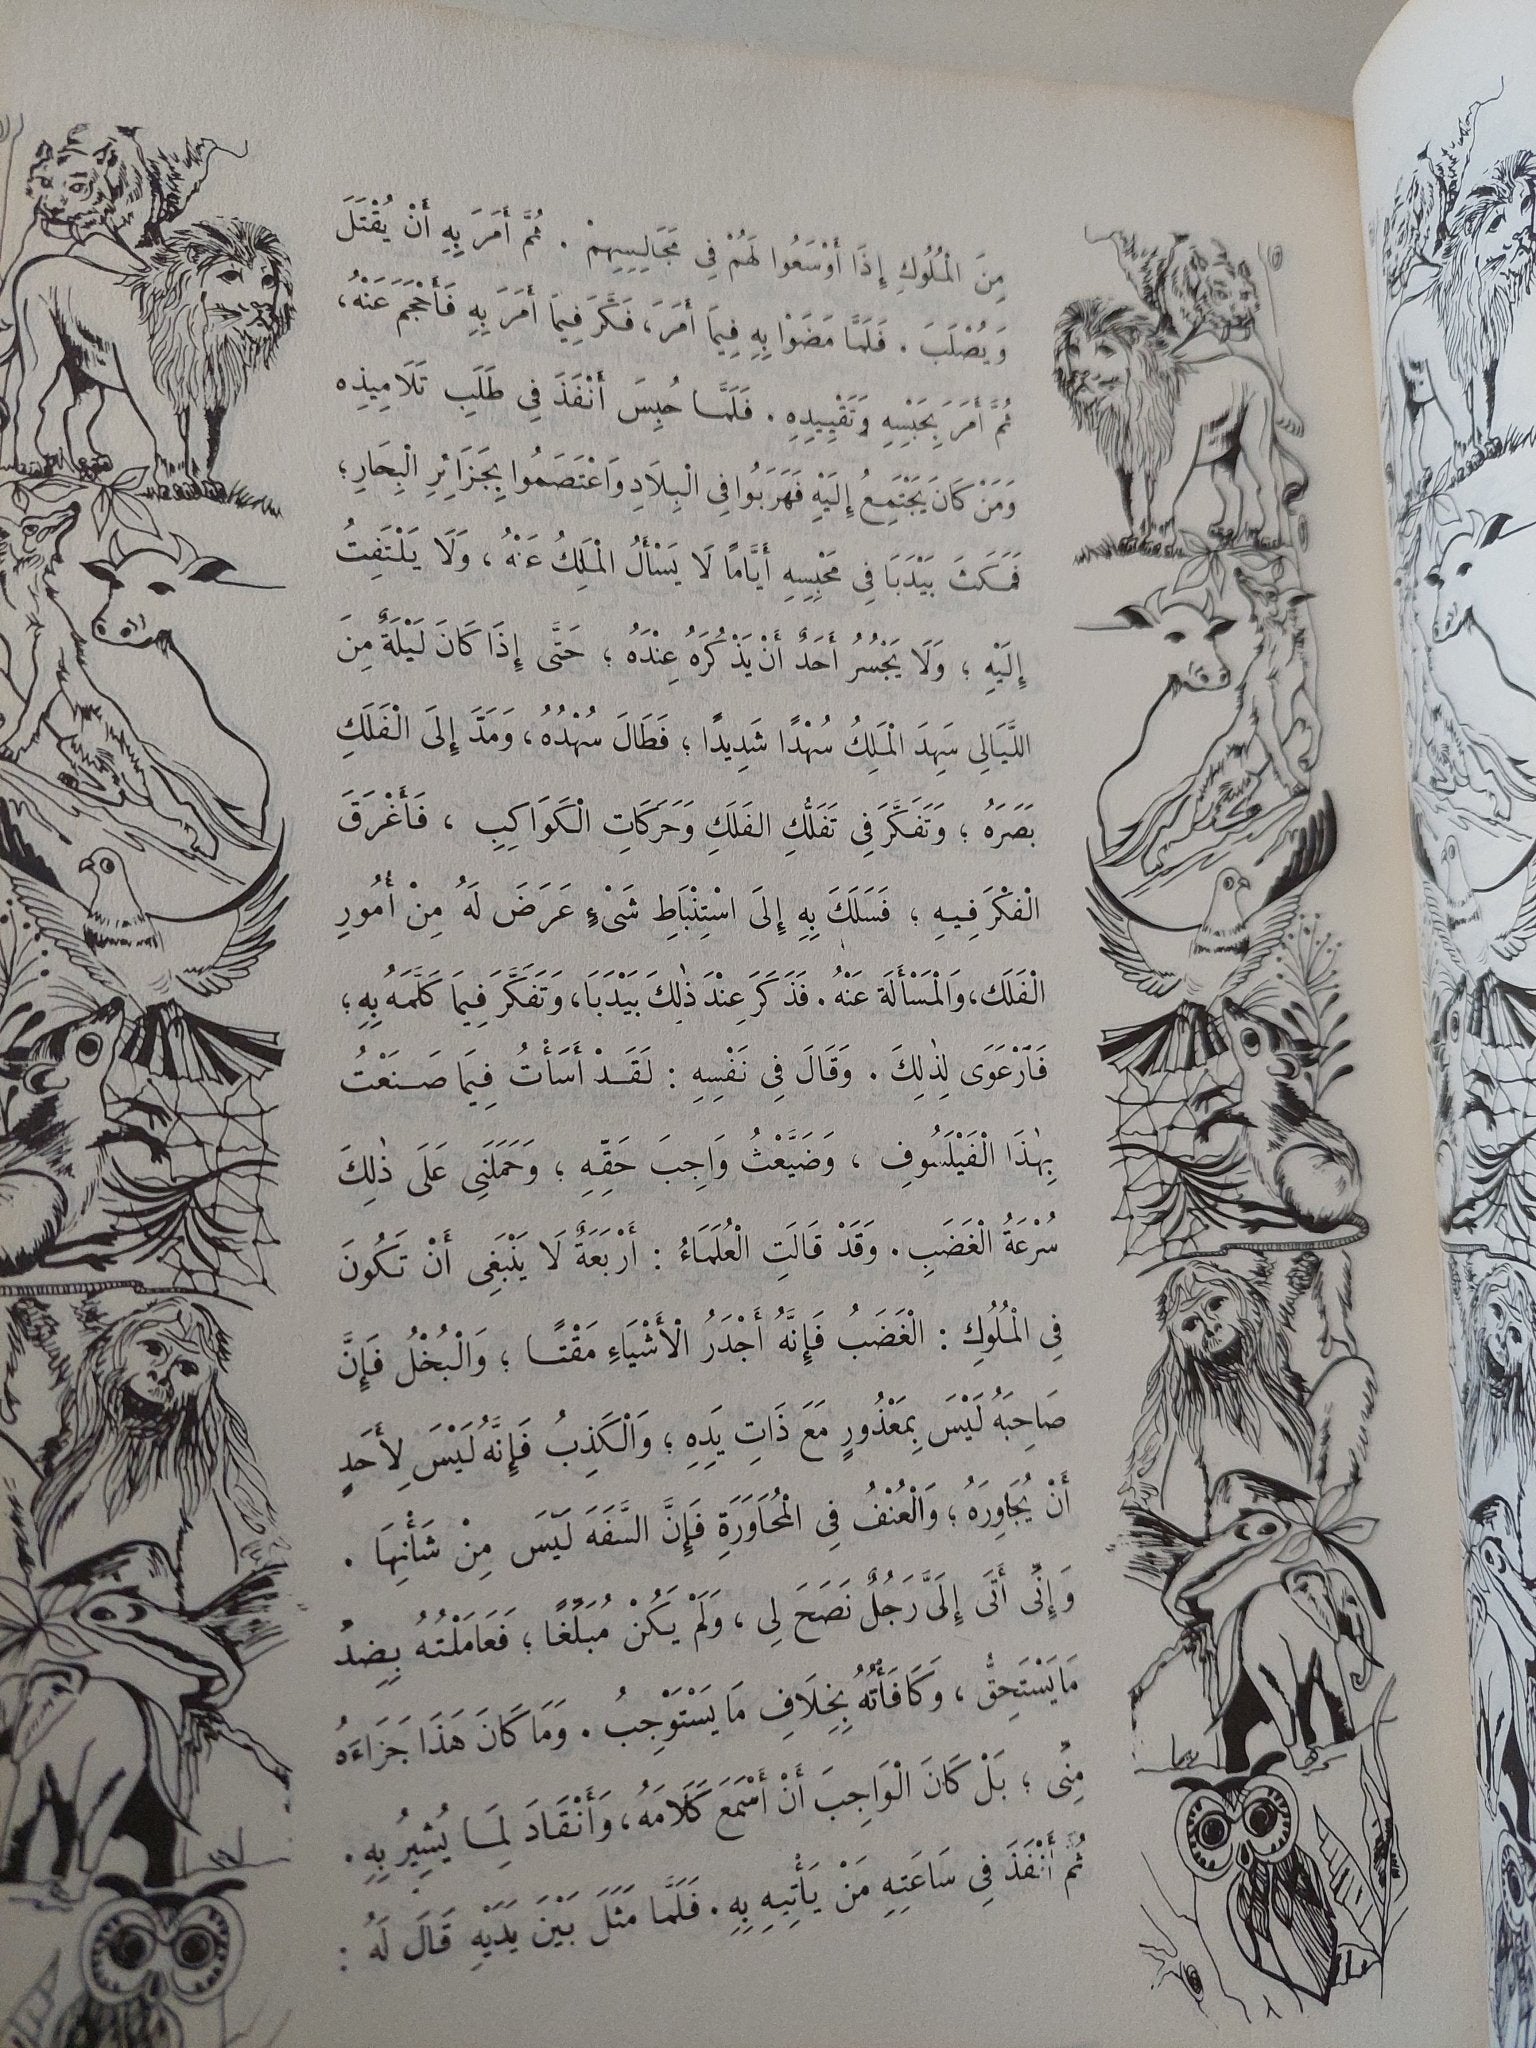 مِنَ الْمُلُوكِ إِذَا أَوْسَعُوا لَهُمْ فِي مَجَالِسِهِمْ . ثُمَّ أَمَرَ بِهِ أَنْ يُقْتَلَ
وَيُصْلَبَ . فَلَمَّا مَضَوْا بِهِ فِيمَا أَمَرَ ، فَكَّرَ فِيمَا أَمَرَ بِهِ فَأَحْجَمَ عَنْهُ ،
ثُمَّ أَمَرَ بِحَبْسِهِ وَتَقْيِيدِهِ . فَلَمَّا حُبِسَ أَنْفَذَ فِي طَلَبِ تَلَامِيذِهِ
وَمَنْ كَانَ يَجْتَمِعُ إِلَيْهِ فَهَرَبُوا فِي الْبِلَادِ وَاعْتَصَمُوا بِجَزَائِرِ الْبِحَارِ ؛
فَمَكَثَ بَيْدَبَا فِي مَحْبِسِهِ أَيَّامًا لَا يَسْأَلُ الْمَلِكُ عَنْهُ ، وَلَا يَلْتَفِتُ
إِلَيْهِ ؛ وَلَا يَجْسُرُ أَحَدٌ أَنْ يَذْكُرَهُ عِنْدَهُ ؛ حَتَّى إِذَا كَانَ لَيْلَةٌ مِنَ
اللَّيَالِي سَهِدَ الْمَلِكُ سُهْدًا شَدِيدًا ؛ فَطَالَ سُهْدُهُ ، وَمَدَّ إِلَى الْفَلَكِ
بَصَرَهُ ؛ وَتَفَكَّرَ فِي تَفَلُّكِ الفَلَكِ وَحَرَكَاتِ الْكَوَاكِبِ ، فَأَغْرَقَ
الْفِكْرَ فِيهِ ؛ فَسَلَكَ بِهِ إِلَى اسْتِنْبَاطِ شَىْءٍ عَرَضَ لَهُ مِنْ أُمُورِ
الْفَلَكِ ، وَالْمَسْأَلَةِ عَنْهُ . فَذَكَرَ عِنْدَ ذٰلِكَ بَيْدَبَا ، وَتَفَكَّرَ فِيمَا كَلَّمَهُ بِهِ ؛
فَٱرْعَوَى لِذٰلِكَ . وَقَالَ فِي نَفْسِهِ : لَقَدْ أَسَأْتُ فِيمَا صَنَعْتُ
بِهٰذَا الْفَيْلَسُوفِ ، وَضَيَّعْتُ وَاجِبَ حَقِّهِ ؛ وَحَمَلَنِي عَلَى ذٰلِكَ
سُرْعَةُ الْغَضَبِ . وَقَدْ قَالَتِ الْعُلَمَاءُ : أَرْبَعَةٌ لَا يَنْبَغِي أَنْ تَكُونَ
فِي الْمُلُوكِ : الْغَضَبُ فَإِنَّهُ أَجْدَرُ الْأَشْيَاءِ مَقْتًا ؛ وَالْبُخْلُ فَإِنَّ
صَاحِبَهُ لَيْسَ بِمَعْذُورٍ مَعَ ذَاتِ يَدِهِ ؛ وَالْكَذِبُ فَإِنَّهُ لَيْسَ لِأَحَدٍ
أَنْ يُجَاوِرَهُ ؛ وَالْعُنْفُ فِي الْمُحَاوَرَةِ فَإِنَّ السَّفَهَ لَيْسَ مِنْ شَأْنِهَا .
وَإِنِّي أَتَى إِلَيَّ رَجُلٌ نَصَحَ لِي ، وَلَمْ يَكُنْ مُبَلِّغًا ؛ فَعَامَلْتُهُ بِضِدِّ
مَا يَسْتَحِقُّ ، وَكَافَأْتُهُ بِخِلَافِ مَا يَسْتَوْجِبُ . وَمَا كَانَ هَذَا جَزَاءَهُ
مِنِّي ؛ بَلْ كَانَ الْوَاجِبَ أَنْ أَسْمَعَ كَلَامَهُ ، وَأَنْقَادَ لِمَا يُشِيرُ بِهِ .
ثُمَّ أَنْفَذَ فِي سَاعَتِهِ مَنْ يَأْتِيهِ بِهِ . فَلَمَّا مَثَلَ بَيْنَ يَدَيْهِ قَالَ لَهُ :